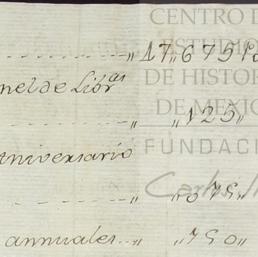 CENTRO D
ESTUDIO
DE HISTOR
DE MEXIC
FUNDACI
"17"675
nel de Libr.as
"125"
Aniversario
"075"
annuales "750"